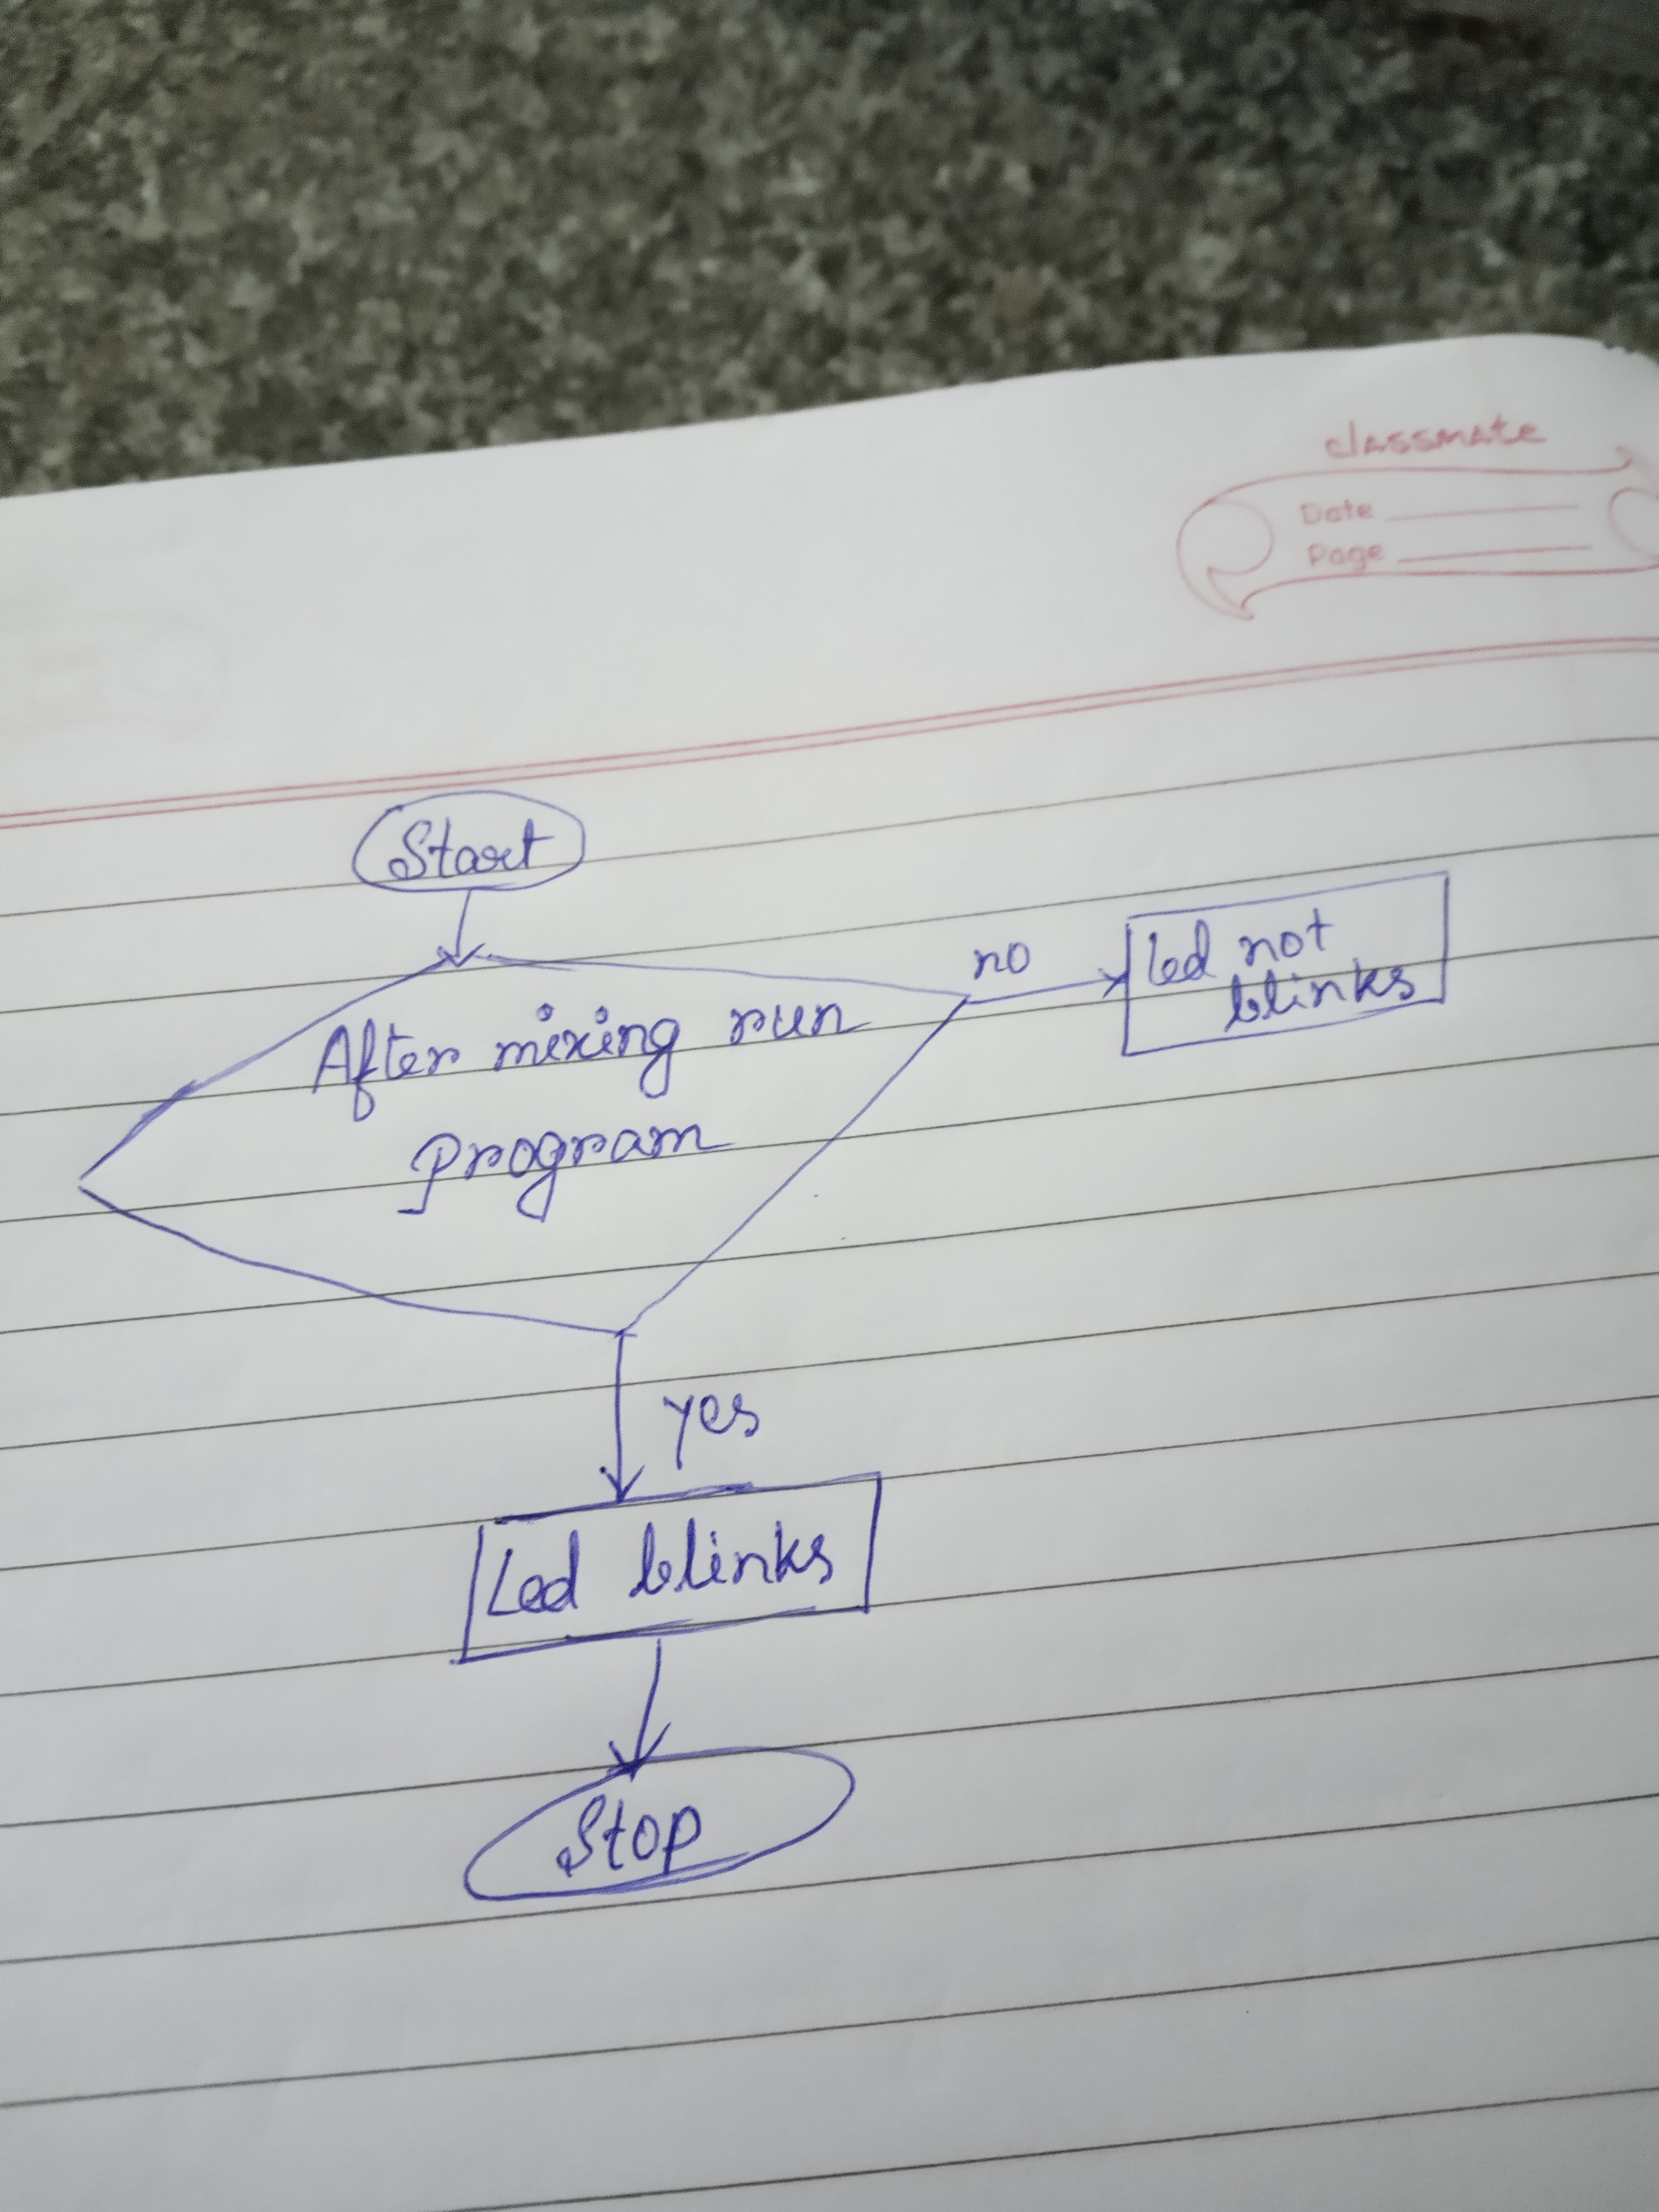 classmate
Date
Page
Start
After mixing run
program
no
Led not
blinks
yes
Led blinks
Stop